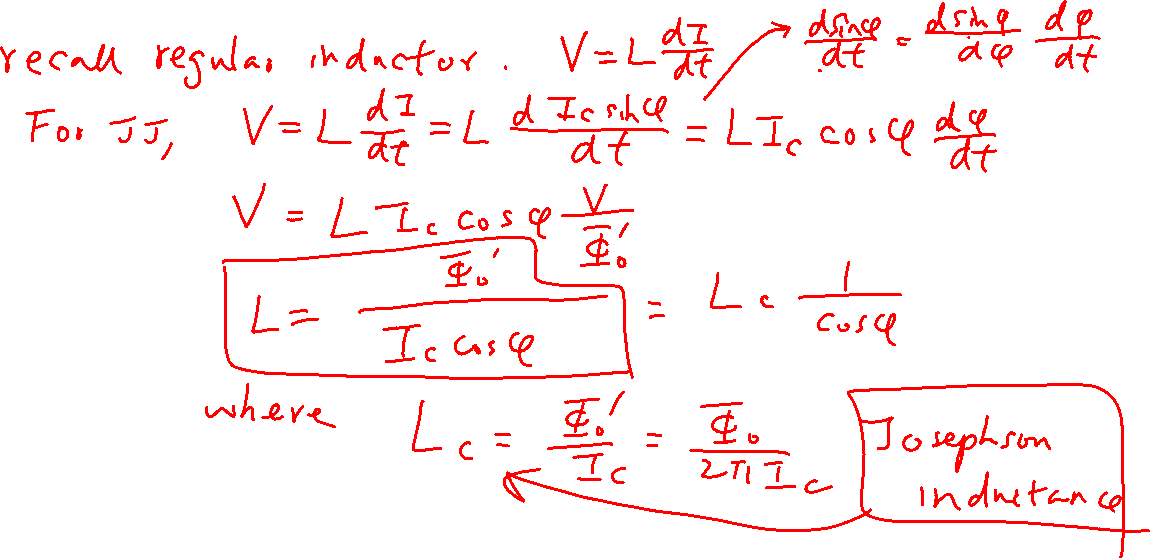 recall regular inductor. V = L dI/dt → dsinφ/dt = dsinφ/dφ dφ/dt
For JJ, V = L dI/dt = L d Ic sinφ/dt = L Ic cosφ dφ/dt
V = L Ic cosφ V/Φ₀'
L = Φ₀'/(Ic cosφ) = Lc 1/cosφ
where Lc = Φ₀'/Ic = Φ₀/(2π Ic)
Josephson
inductance